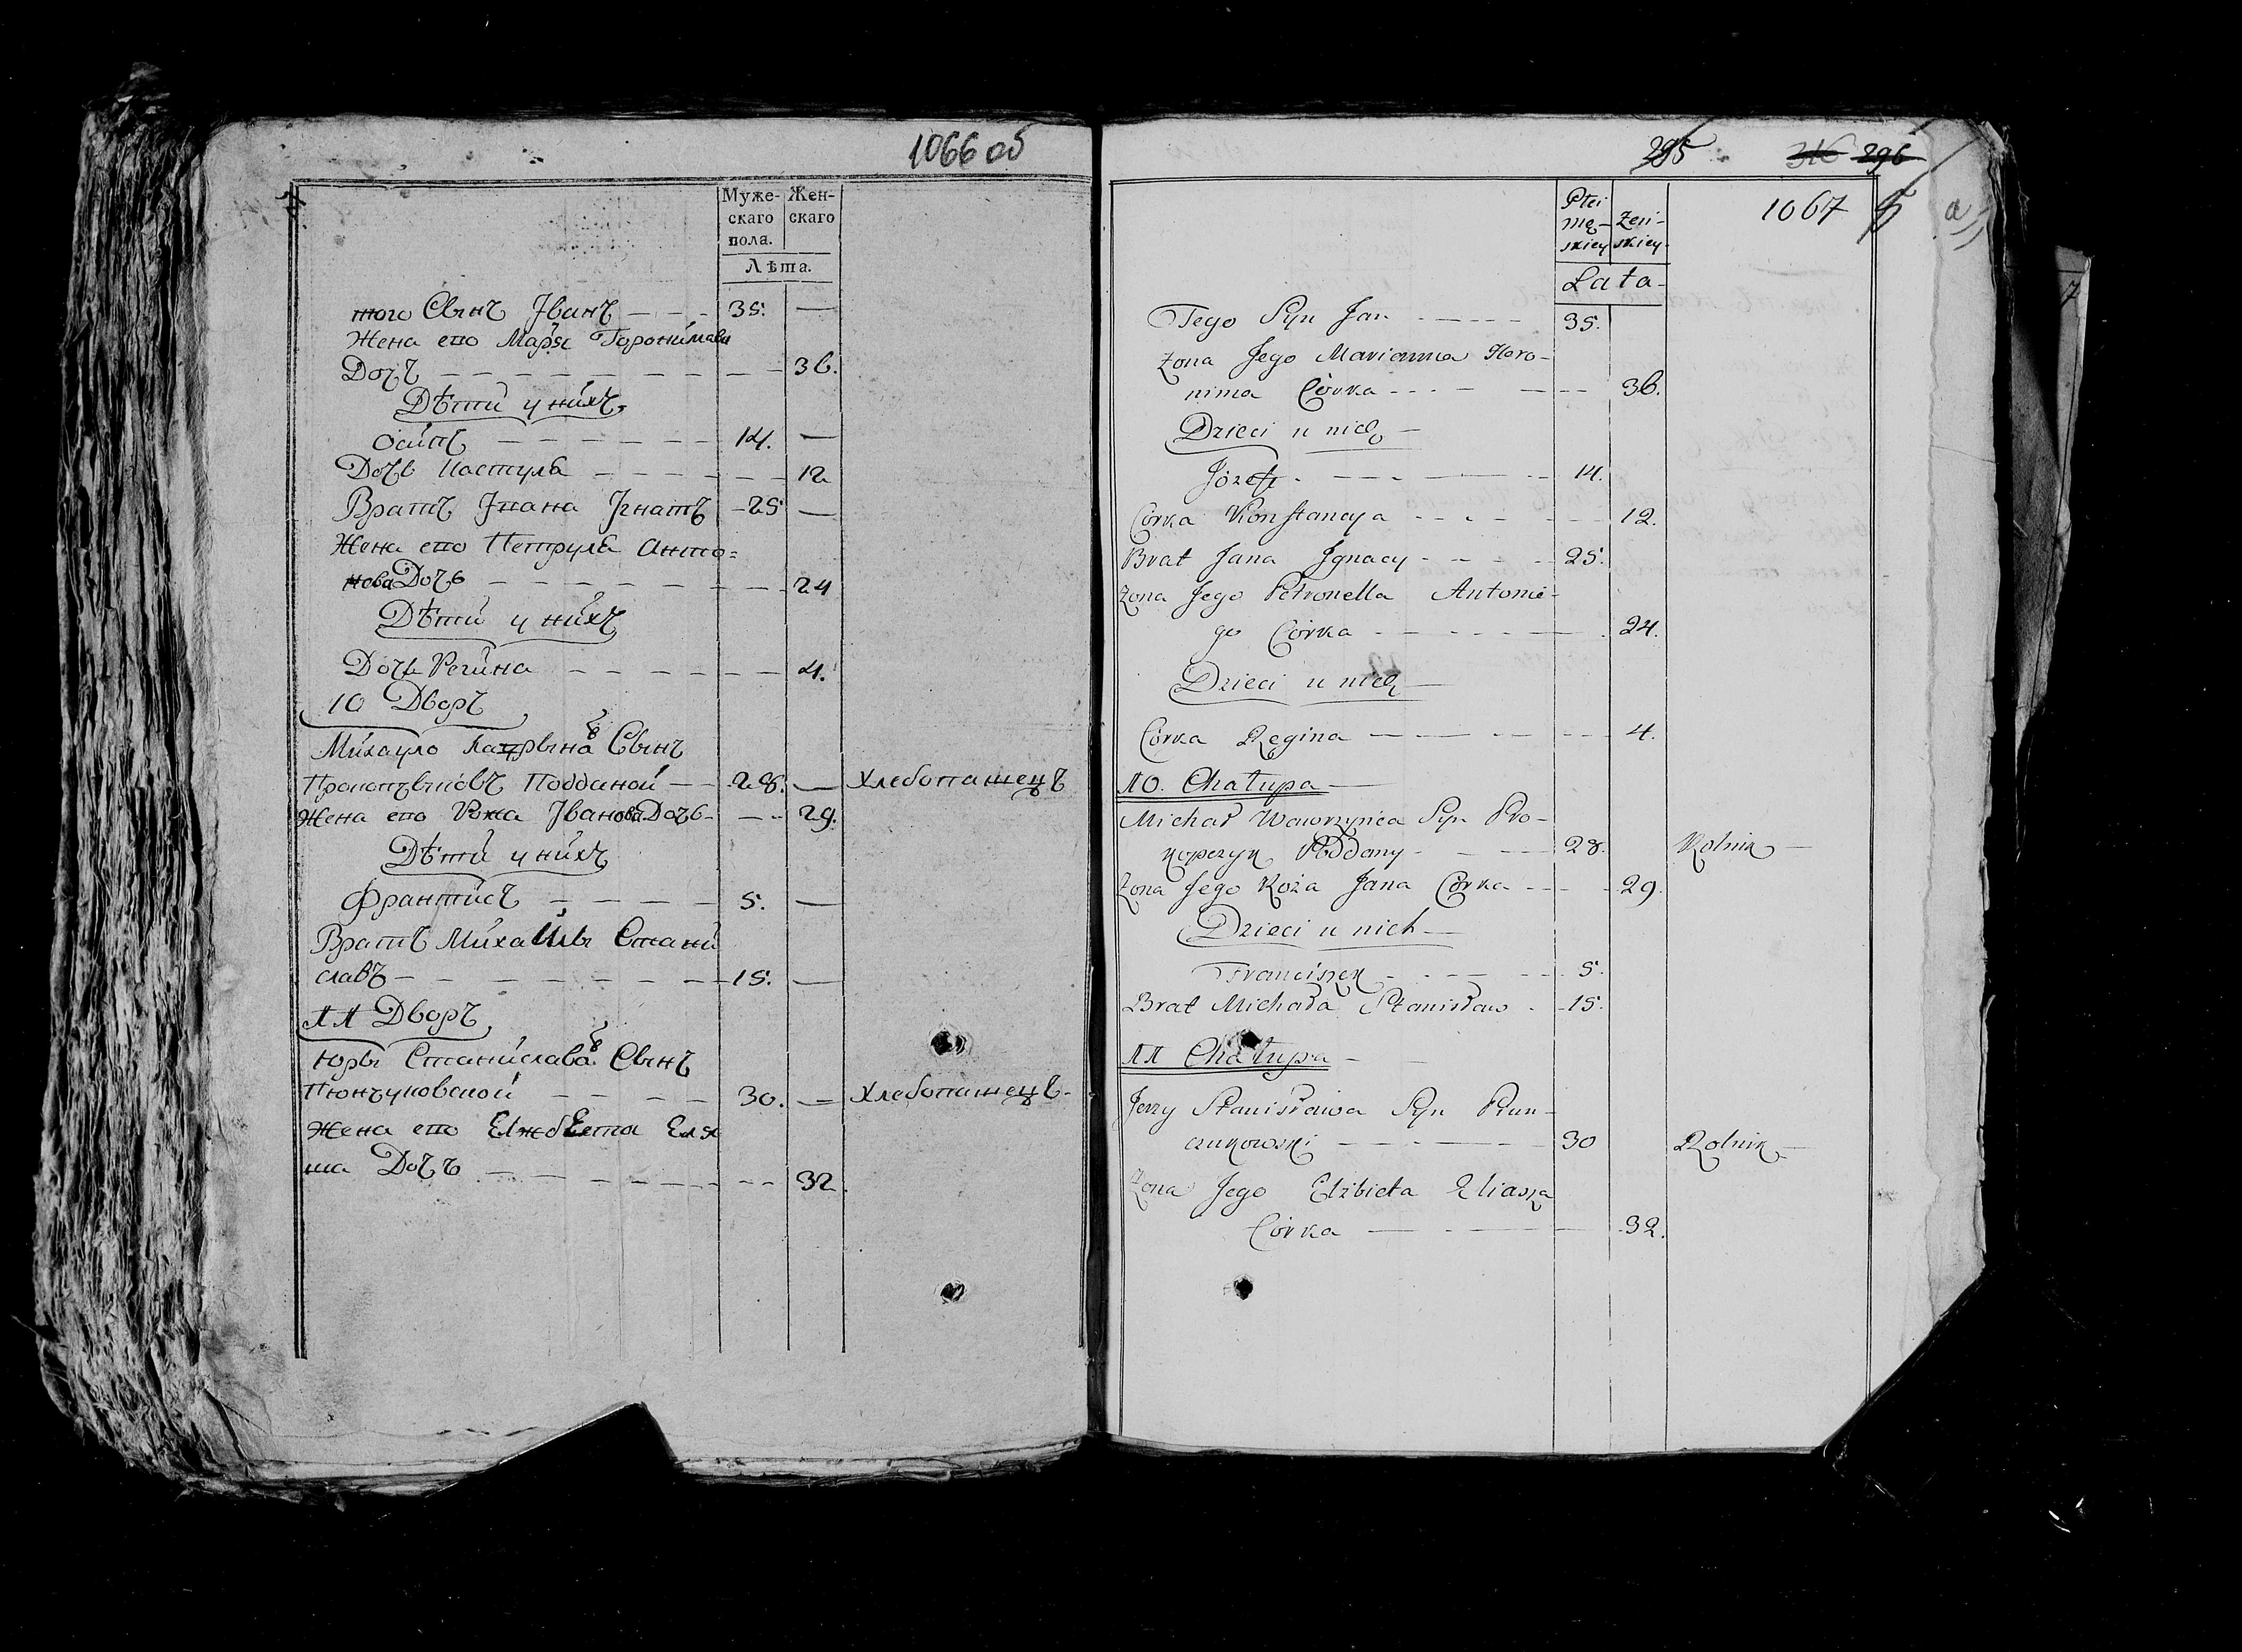 1066 об
Муже- Жен-
скаго скаго
пола.
Лѣта.
того Сынъ Іванъ — — — 35. —
Жена его Марья Горонимава
Дочъ — — — — — — 36.
Дѣти у нихъ
Осипъ — — — — — — 14. —
Дочь Костуля — — — — — 12
Братъ Івана Ігнатъ — 25 —
Жена его Петруля Анто=
нова Дочь — — — — — — 24
Дѣти у нихъ
Дочь Регина — — — — — 4.
10 Дворъ
Михайло Лаврына Сынъ
Прокопчыковъ Подданой — 28. — Хлебопашецъ
Жена его Рожа Іванова Дочь — — 29.
Дѣти у нихъ
Франтисъ — — — — 5. —
Братъ Михайлы Стани
славъ — — — — — — 15. —
11 Дворъ
Юры Станислава Сынъ
— — — — 30. — Хлебопашецъ —
Жена его Елжбета Еля
ша Дочъ — — — — — — 32.
295 316 296
1067
Płci Żeń-
mę- skiey
skiey
Lata
Tego Syn Jan — — — — 35.
Żona Jego Marianna Hero-
nima Córka — — — — — 36.
Dzieci u nich —
Józef — — — — — 14.
Córka Konstancya — — — — — 12.
Brat Jana Ignacy — — — — 25.
Żona Jego Petronella Antonie-
go Córka — — — — — 24.
Dzieci u nich —
Córka Regina — — — — — 4.
10. Chałupa —
Michał Wawrzyńca Syn Pro-
kopczyk Poddany — — — 28. Rolnik —
Żona Jego Róża Jana Córka — — — 29.
Dzieci u nich —
Franciszek — — — — 5.
Brat Michała Stanisław — 15.
11 Chałupa —
Jerzy Stanisława Syn Piun-
czukowski — — — — 30 Rolnik —
Żona Jego Elżbieta Eliasza
Córka — — — — 32.